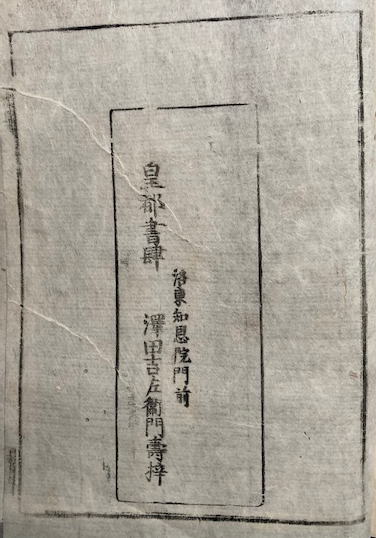 洛東知恩院門前
皇都書肆 澤田吉左衞門壽梓